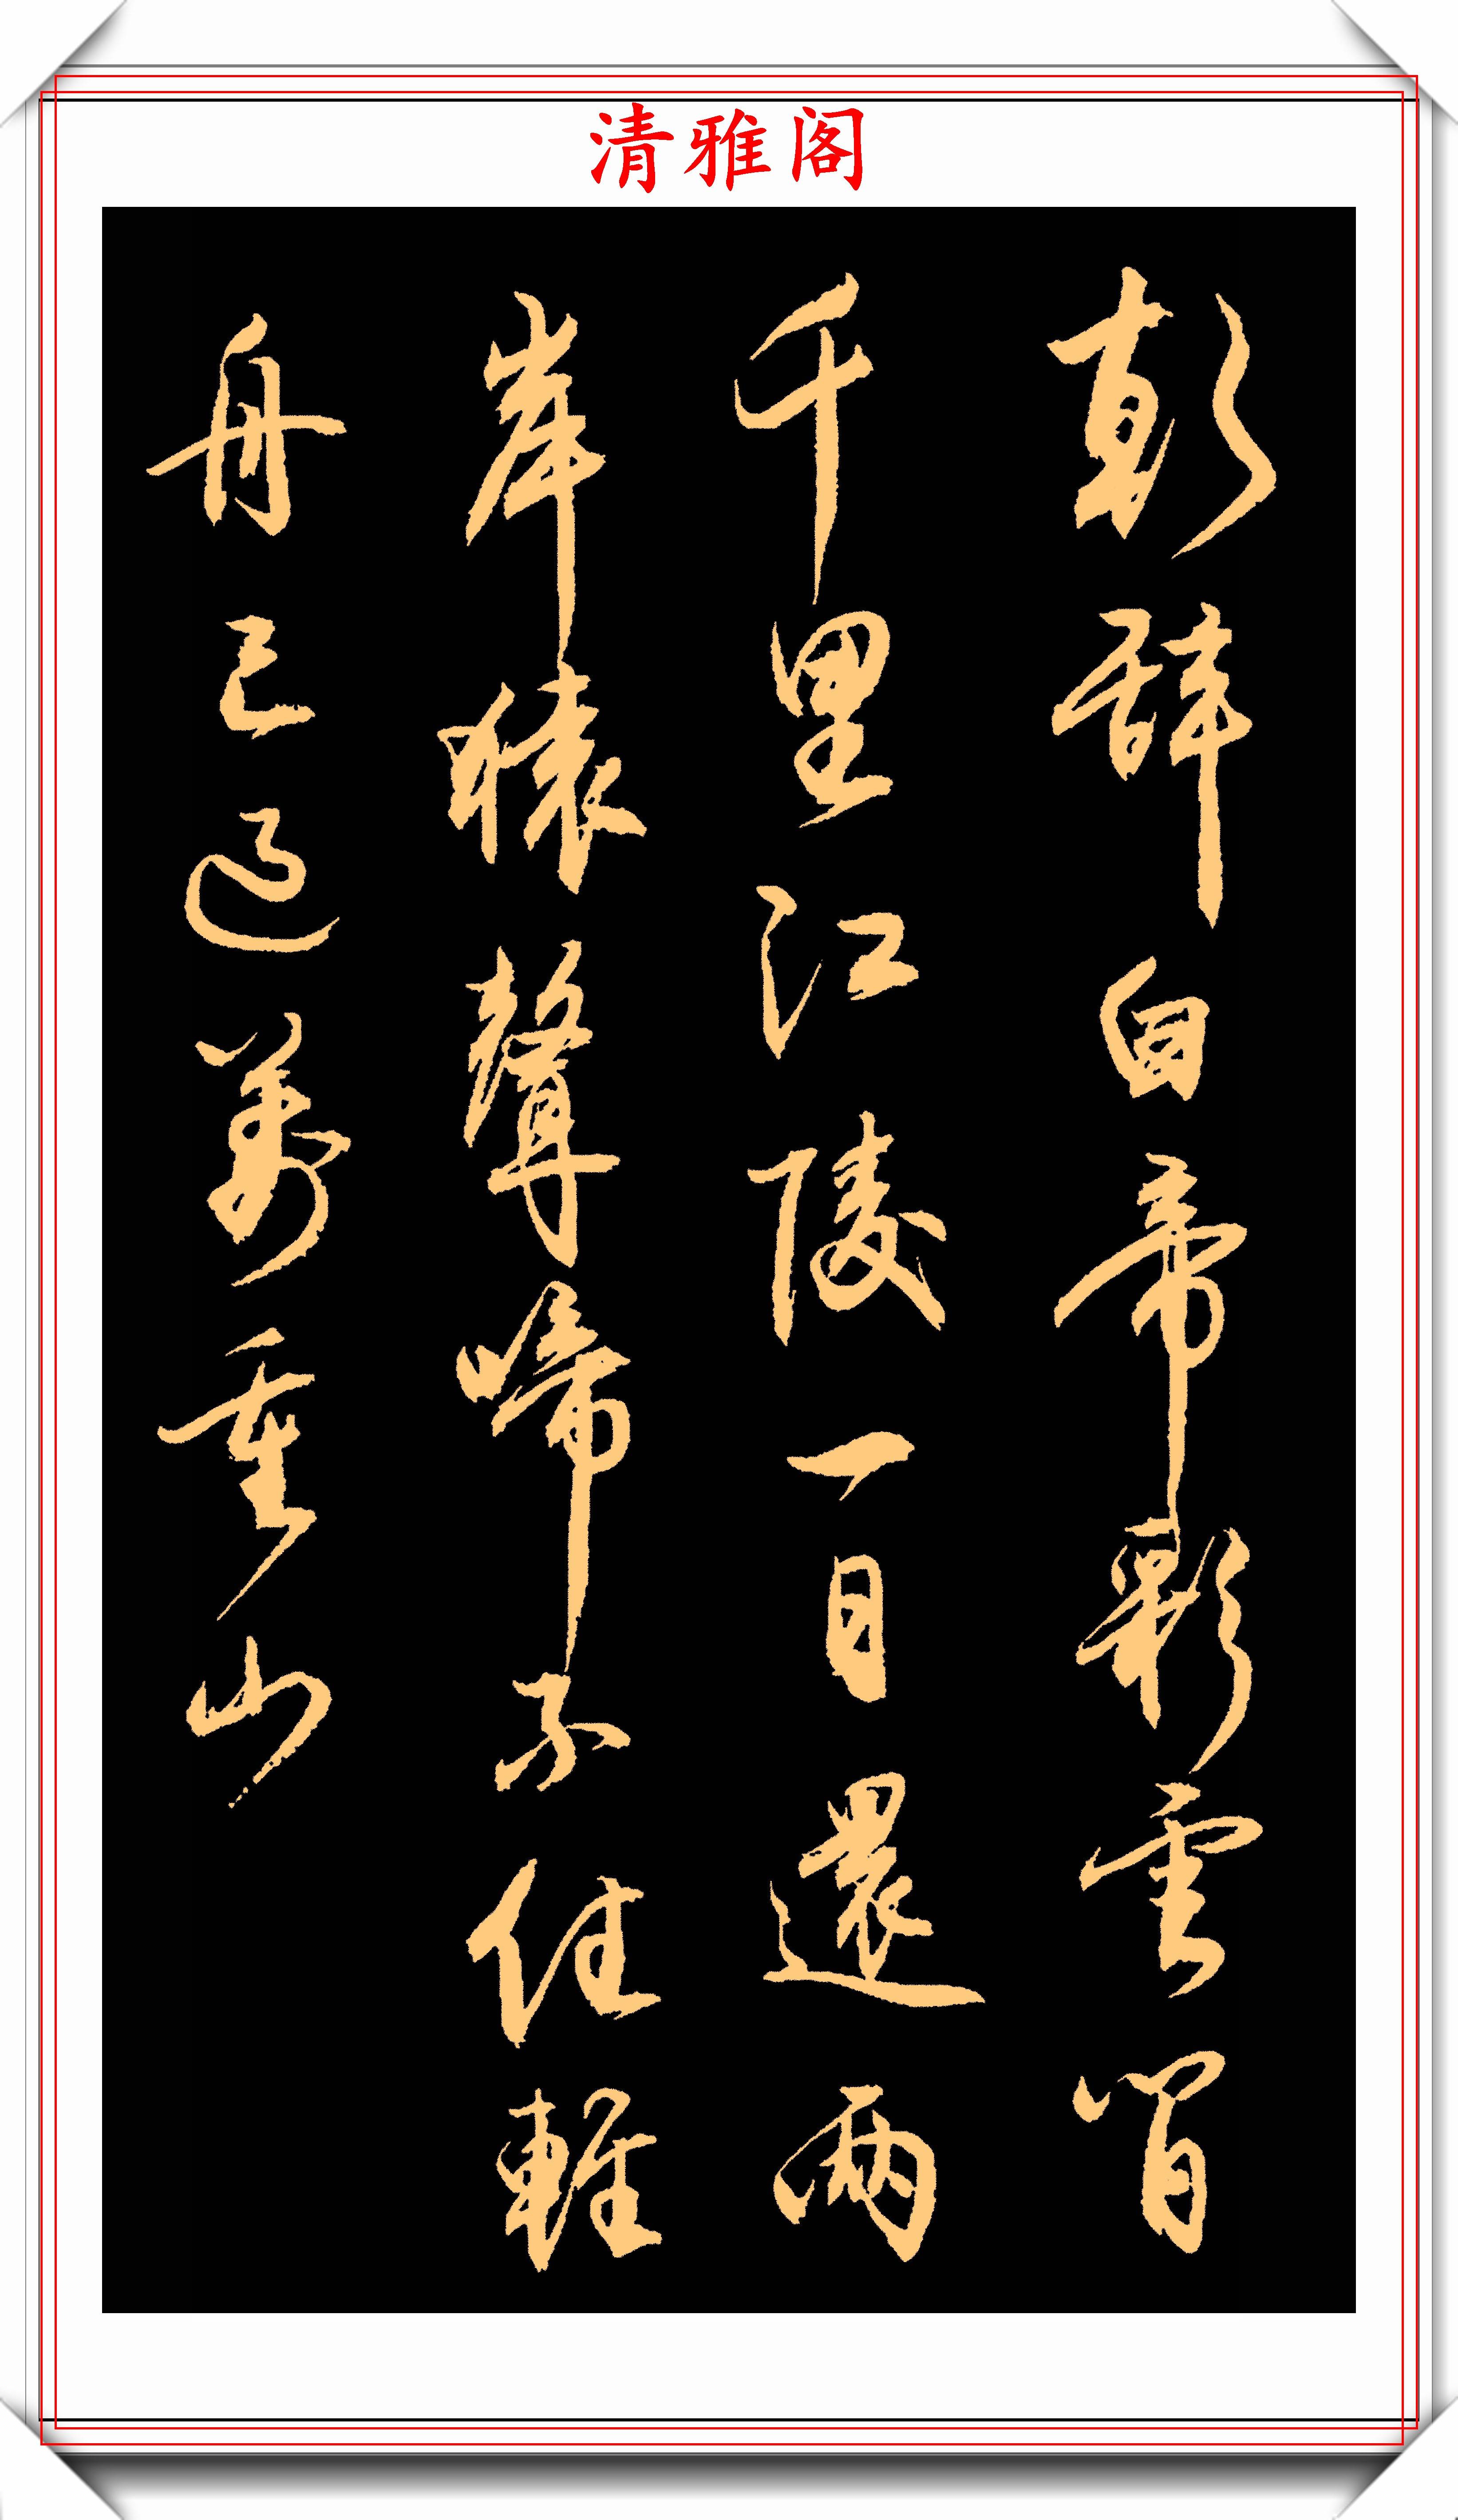 清雅阁
朝辭白帝彩雲間
千里江陵一日還兩
岸猿聲啼不住輕
舟已過萬重山